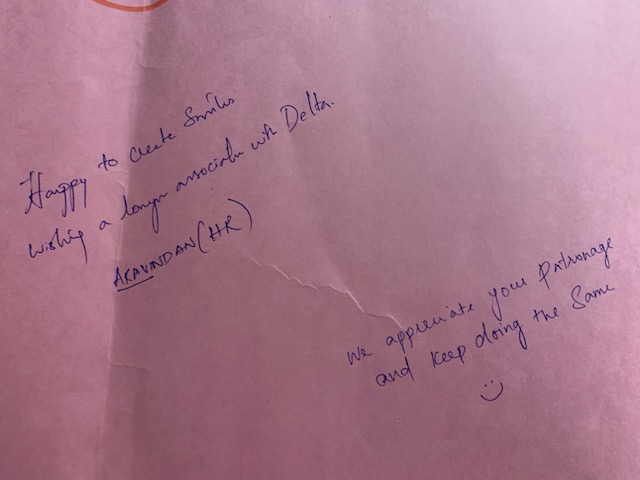 Happy to create Smiles
wishing a longer association with Delta.
ARAVINDAN (HR)
we appreciate your patronage
and keep doing the same